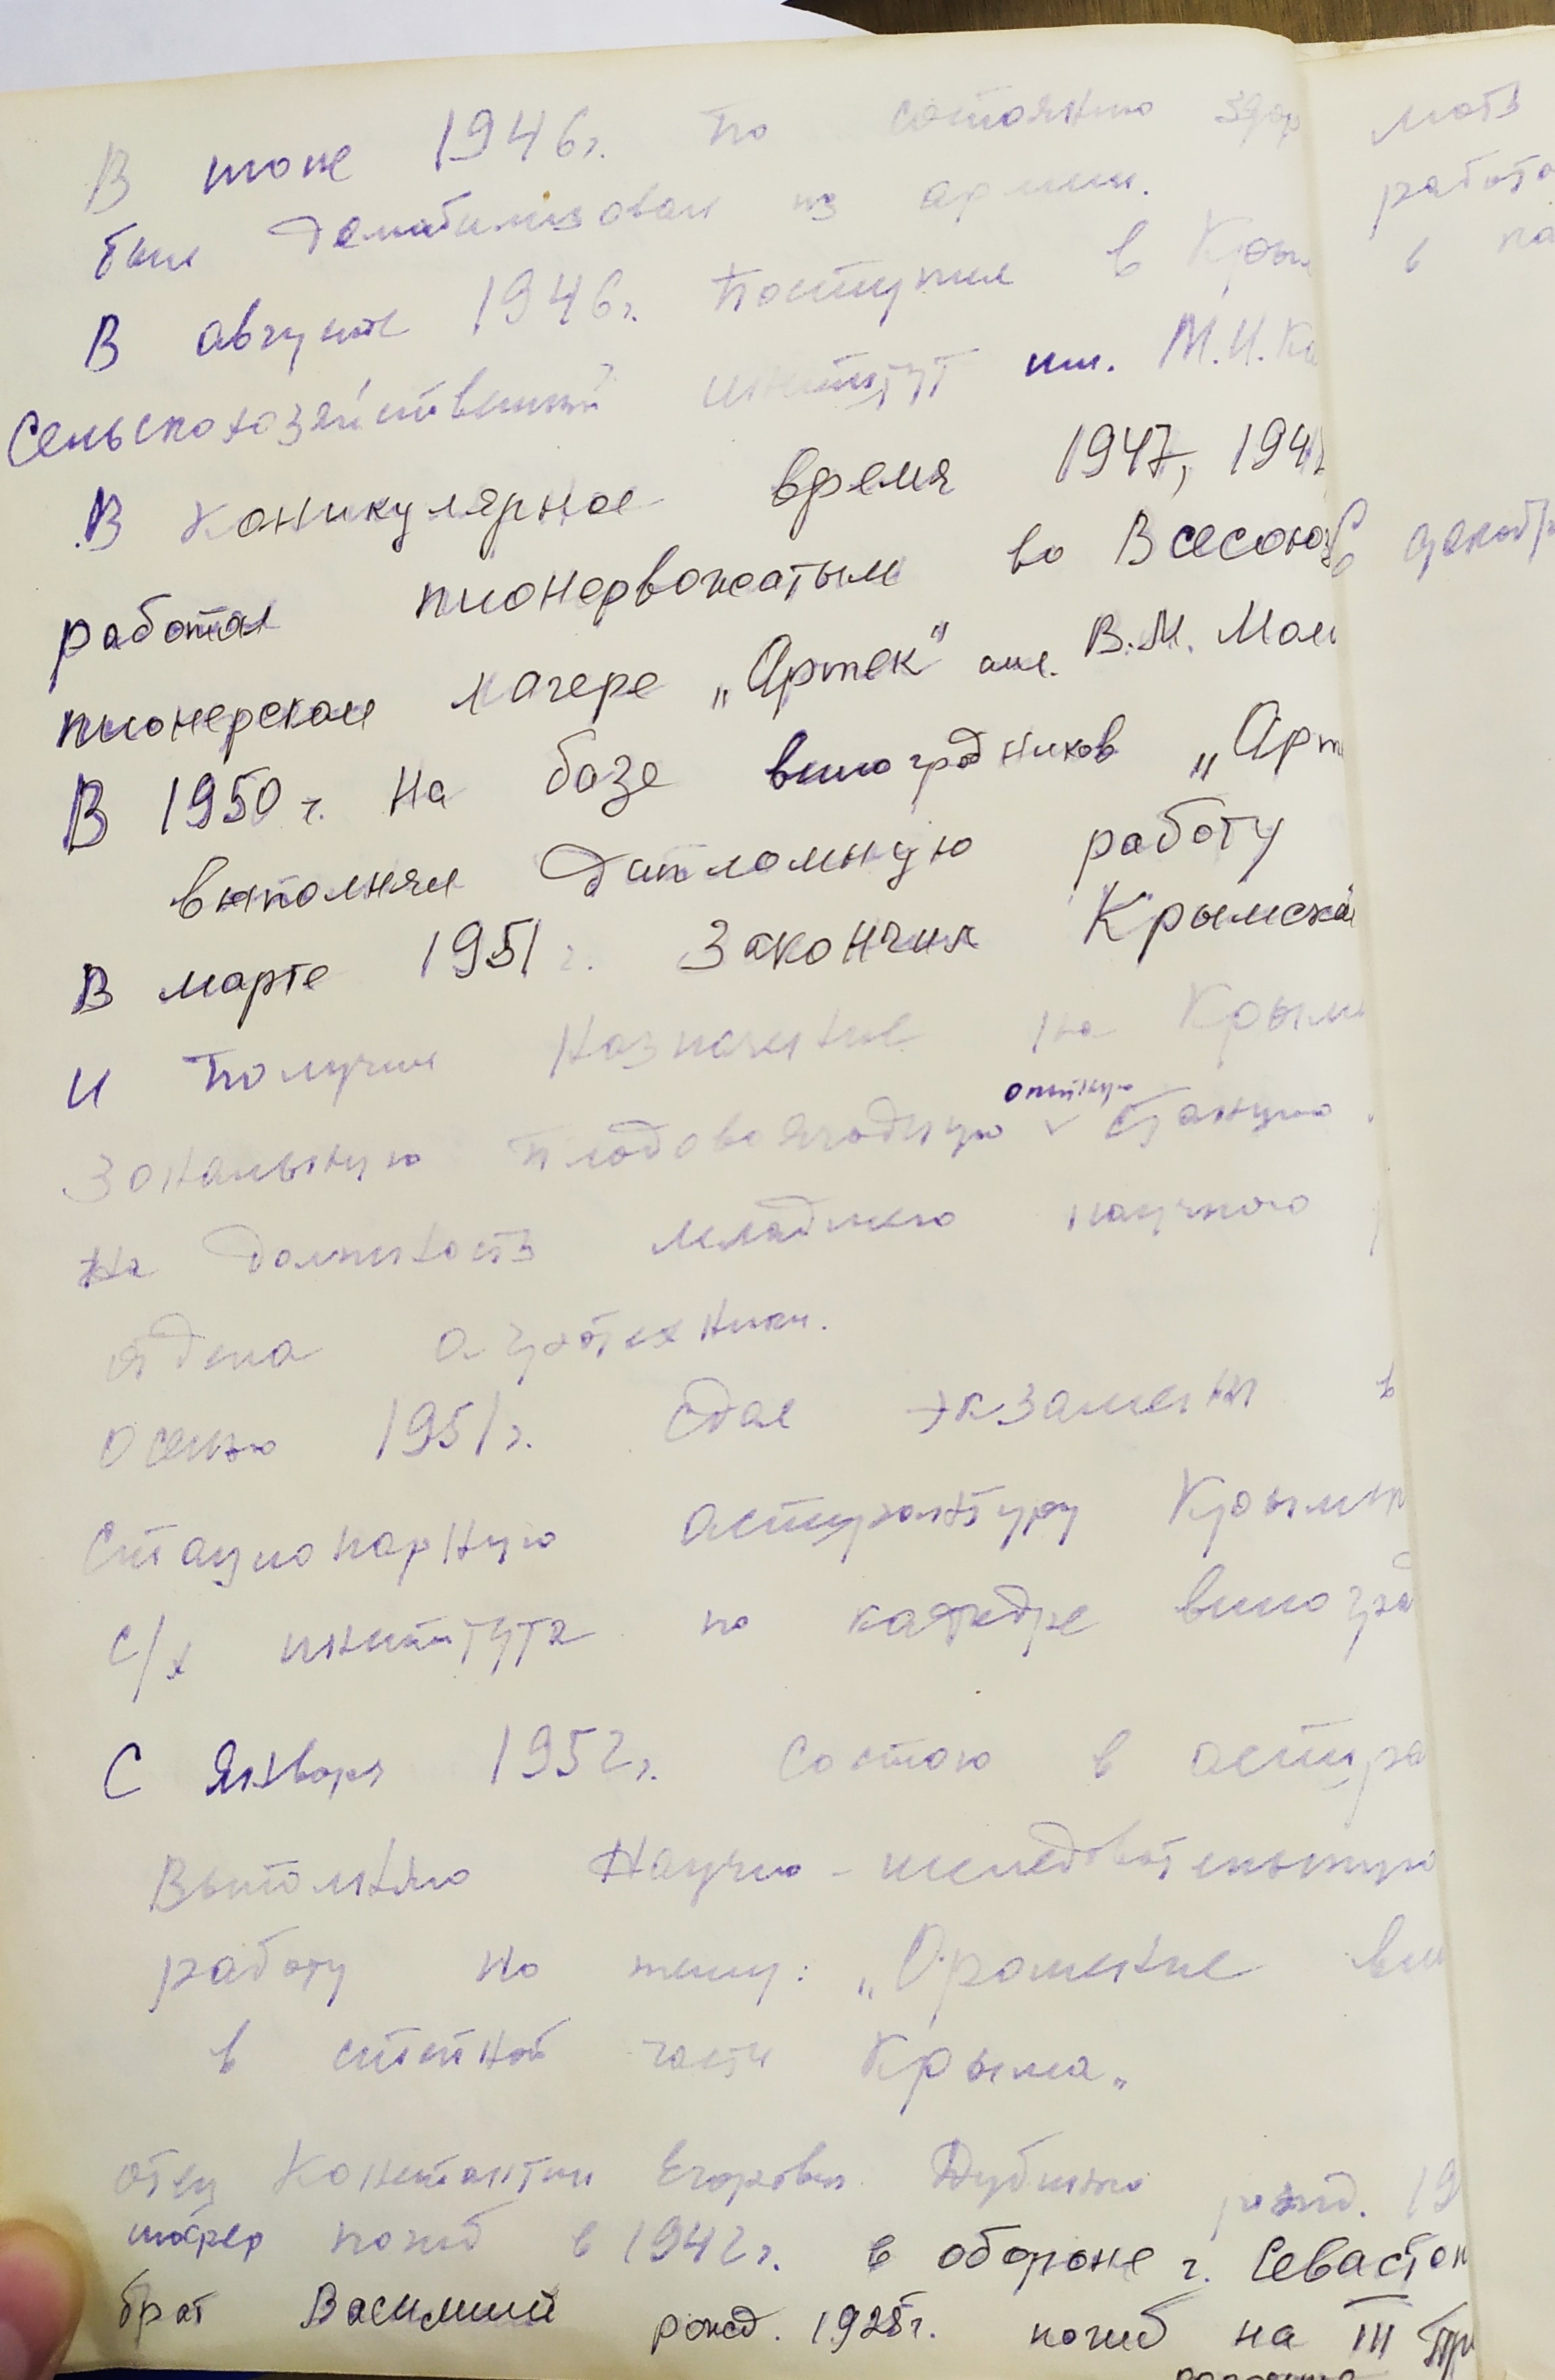 В июне 1946г. по состоянию здор
был демобилизован из армии.
В августе 1946г. поступил в Крым
Сельскохозяйственный институт им. М.И. Ка
В каникулярное время 1947, 194
работал пионервожатым во Всесоюз
пионерском лагере „Артек" им. В.М. Мол
В 1950 г. на базе виноградников „Арт
выполнял дипломную работу
В марте 1951 г. Закончил Крымский
и получил назначение на Крым
опытную
Зональную плодовоягодную станцию.
на должность младшего научного
отдела агротехники.
Осенью 1951г. сдал экзамены в
стационарную аспирантуру Крымск
с/х института по кафедре виногра
С января 1952г. состою в аспира
Выполняю Научно-исследовательскую
работу на тему: „Орошение ви
в степной части Крыма„
отец Константин Егорович рожд. 19
шофер погиб в 1942г. в обороне г. Севастоп
брат Василий рожд. 1925г. погиб на III
мать
работа
в
декабр